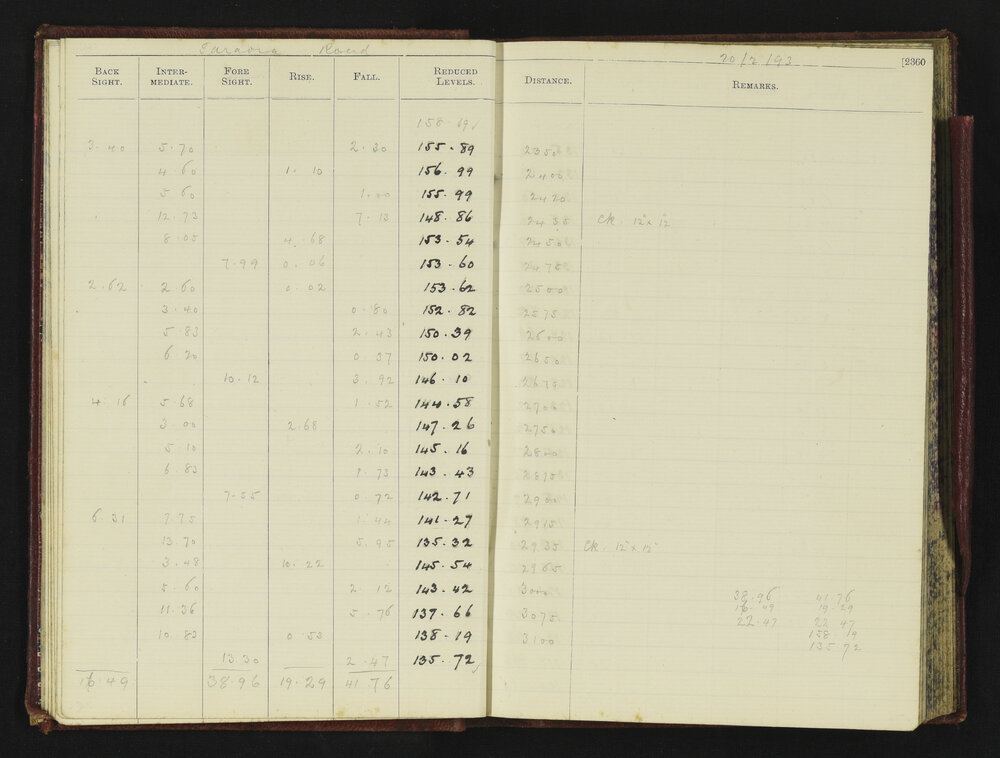 Road 20/2/93 [2360
BACK SIGHT. INTER-MEDIATE. FORE SIGHT. RISE. FALL. REDUCED LEVELS. DISTANCE. REMARKS.
158.19
3.40 5.70 2.30 155.89 2350
4.60 1.10 156.99 2400
5.60 1.00 155.99 2420
12.73 7.13 148.86 2435 Ck. 12" x 12"
8.05 4.68 153.54 2450
7.99 0.06 153.60 2475
2.62 2.60 0.02 153.62 2500
3.40 0.80 152.82 2575
5.83 2.43 150.39 2600
6.20 0.37 150.02 2650
10.12 3.92 146.10 2675
4.16 5.68 1.52 144.58 2700
3.00 2.68 147.26 2750
5.10 2.10 145.16 2800
6.83 1.73 143.43 2875
7.55 0.72 142.71 2900
6.31 7.75 1.44 141.27 2915
13.70 5.95 135.32 2935 Ck. 12" x 12"
3.48 10.22 145.54 2965
5.60 2.12 143.42 3000
11.36 5.76 137.66 3075
10.83 0.53 138.19 3100
13.30 2.47 135.72
16.49 38.96 19.29 41.76
38.96 41.76
16.49 19.29
22.47 22.47
158.19
135.72